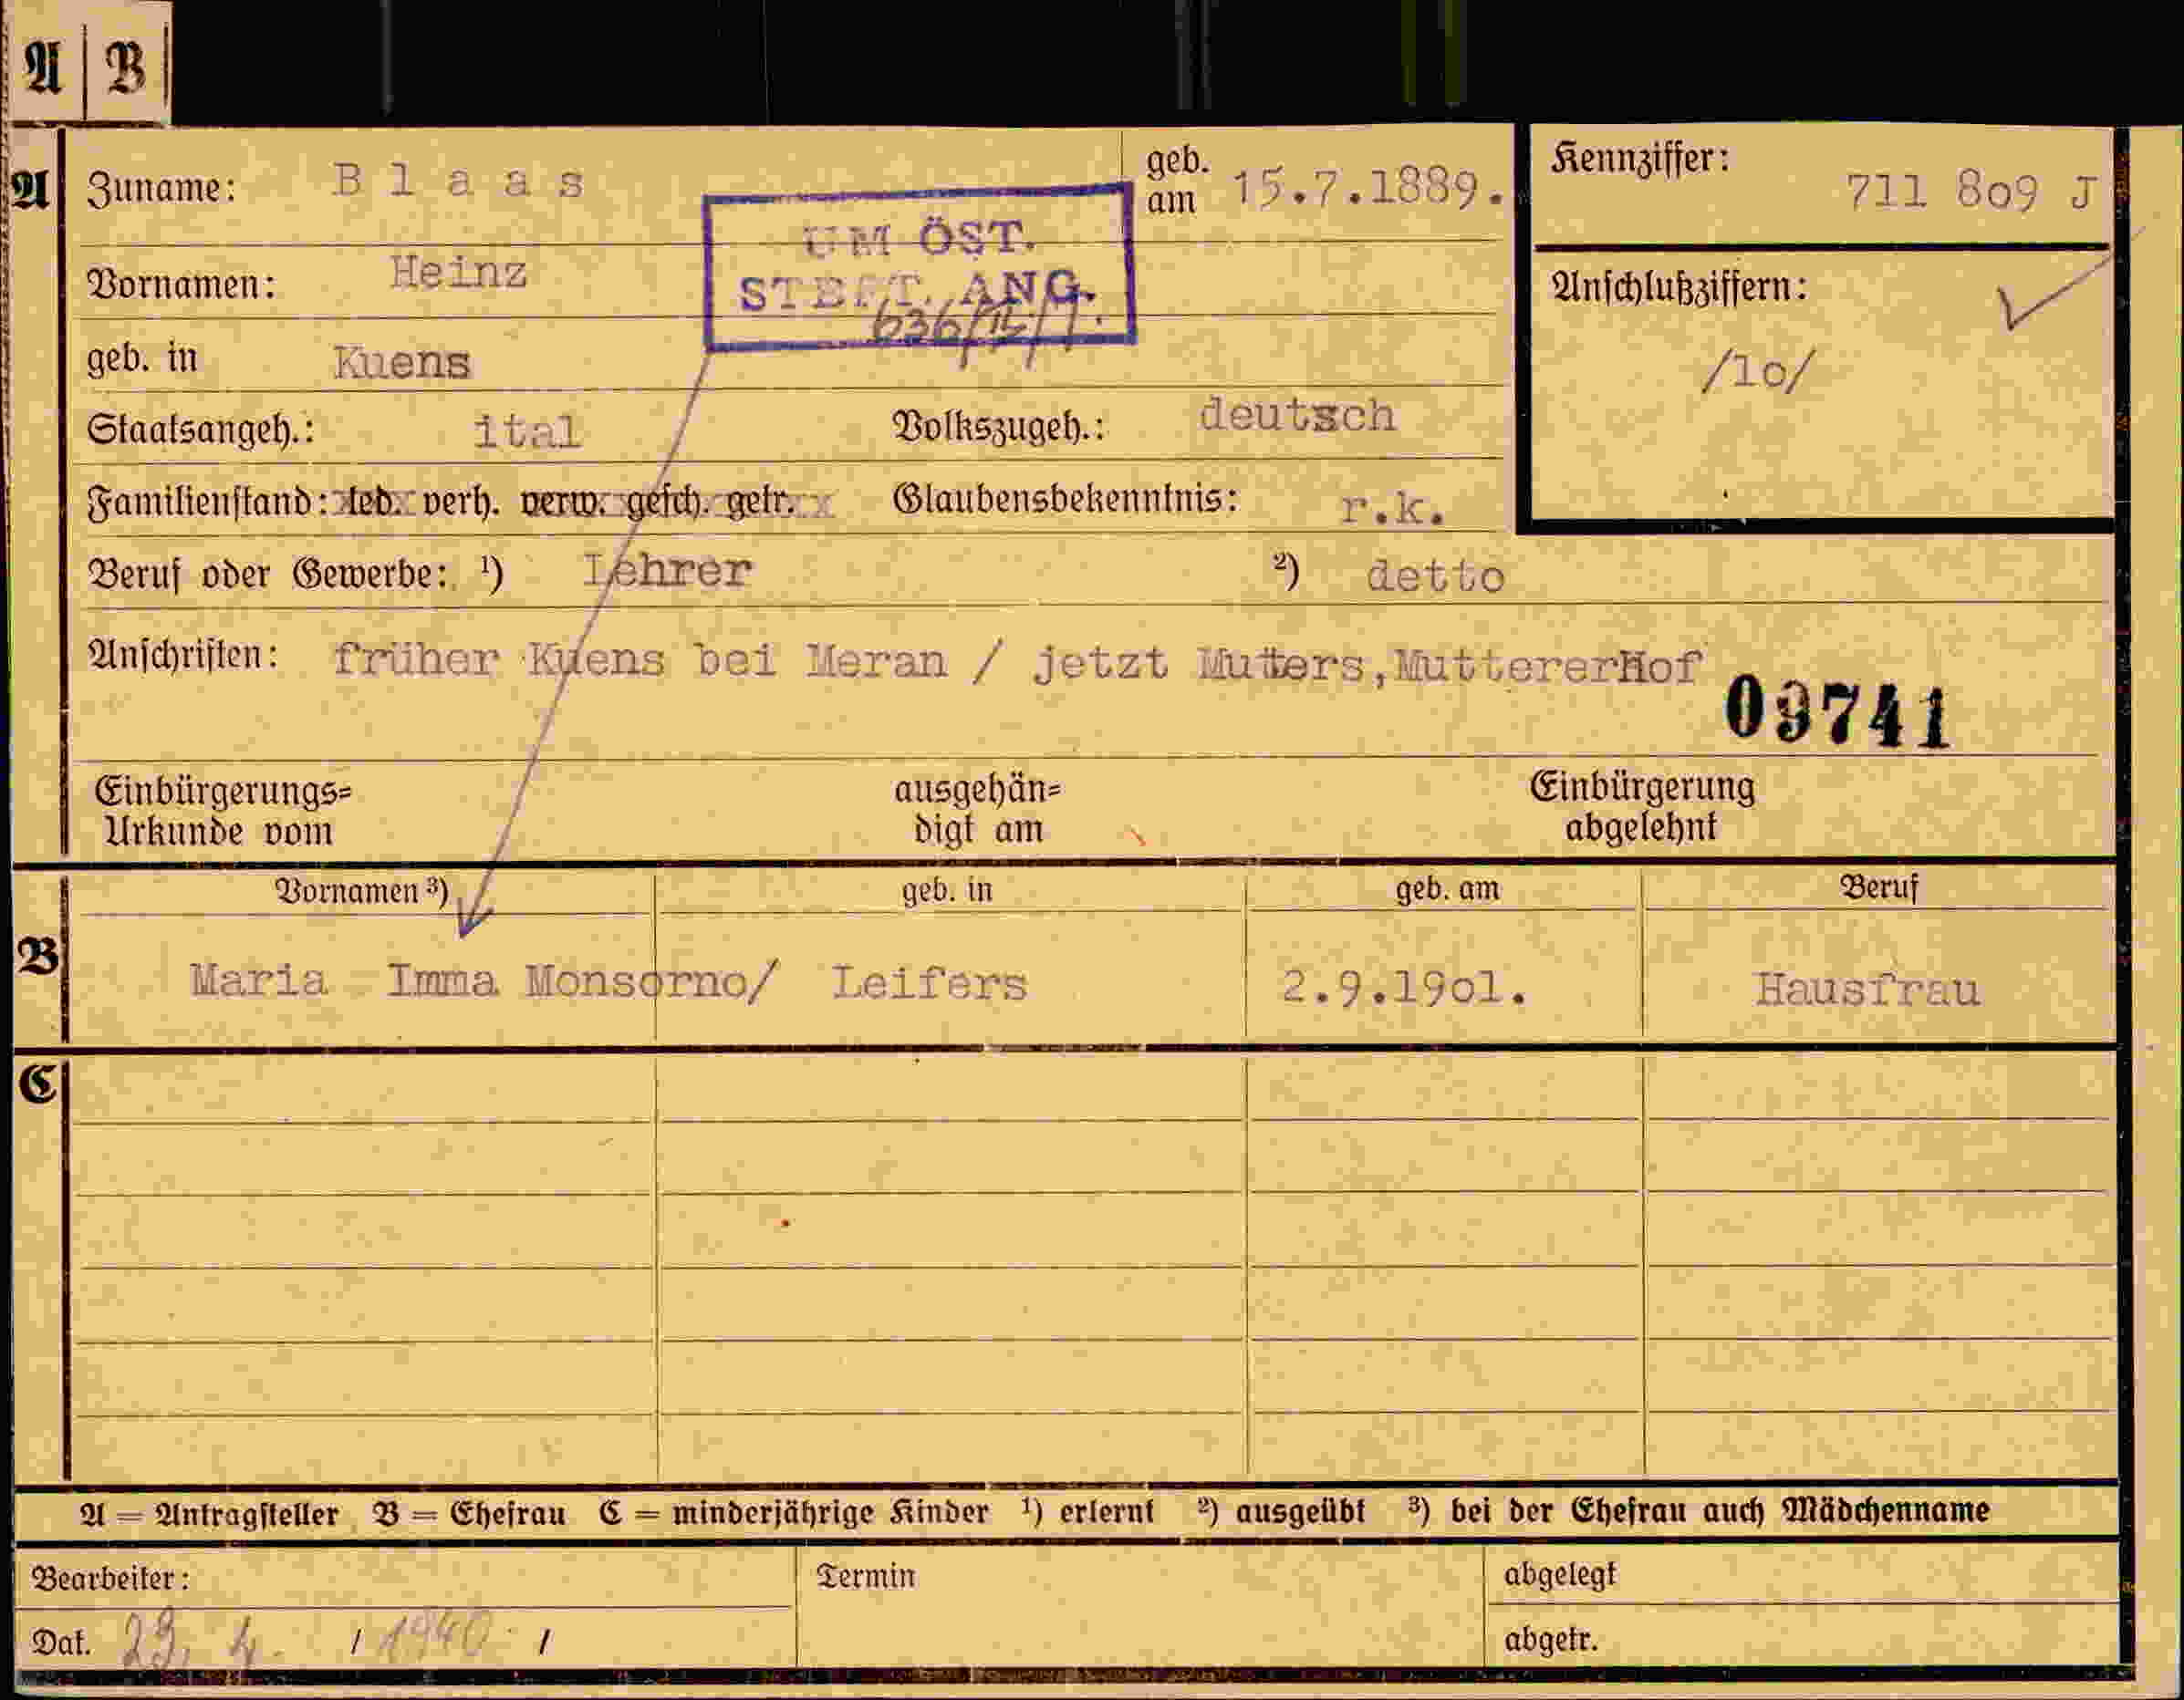 A | B
A Zuname: Blaas geb. am 15.7.1889. Kennziffer: 711 809 J
UM ÖST. STBFT. ANG.
Vornamen: Heinz
Anschlußziffern: /1o/
geb. in Kuens
Staatsangeh.: ital Volkszugeh.: deutsch
Familienstand: led. verh. verw. gesch. getr. Glaubensbekenntnis: r.k.
Beruf oder Gewerbe: ¹) Lehrer ²) detto
Anschriften: früher Kuens bei Meran / jetzt Mutters, MuttererHof
09741
Einbürgerungs= Urkunde vom ausgehän= digt am Einbürgerung abgelehnt
Vornamen ³) geb. in geb. am Beruf
B Maria Imma Monsorno/ Leifers 2.9.19o1. Hausfrau
C
A = Antragsteller B = Ehefrau C = minderjährige Kinder ¹) erlernt ²) ausgeübt ³) bei der Ehefrau auch Mädchenname
Bearbeiter: Termin abgelegt
Dat. 23. 4. / 1940 / abgetr.